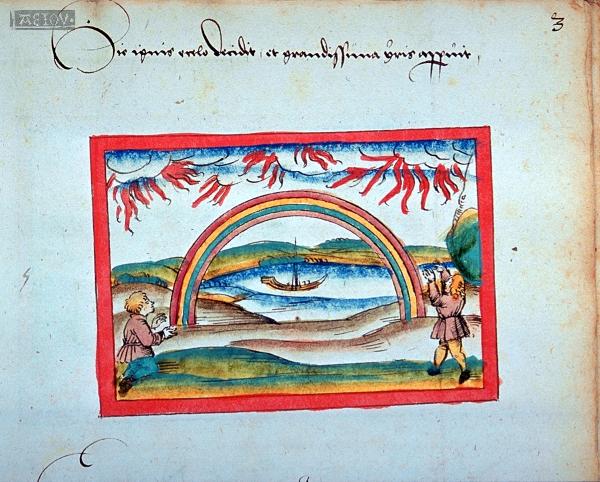 AEIOU.
3
Sic ignis ecelo decidit, et grandissima yris apparuit,